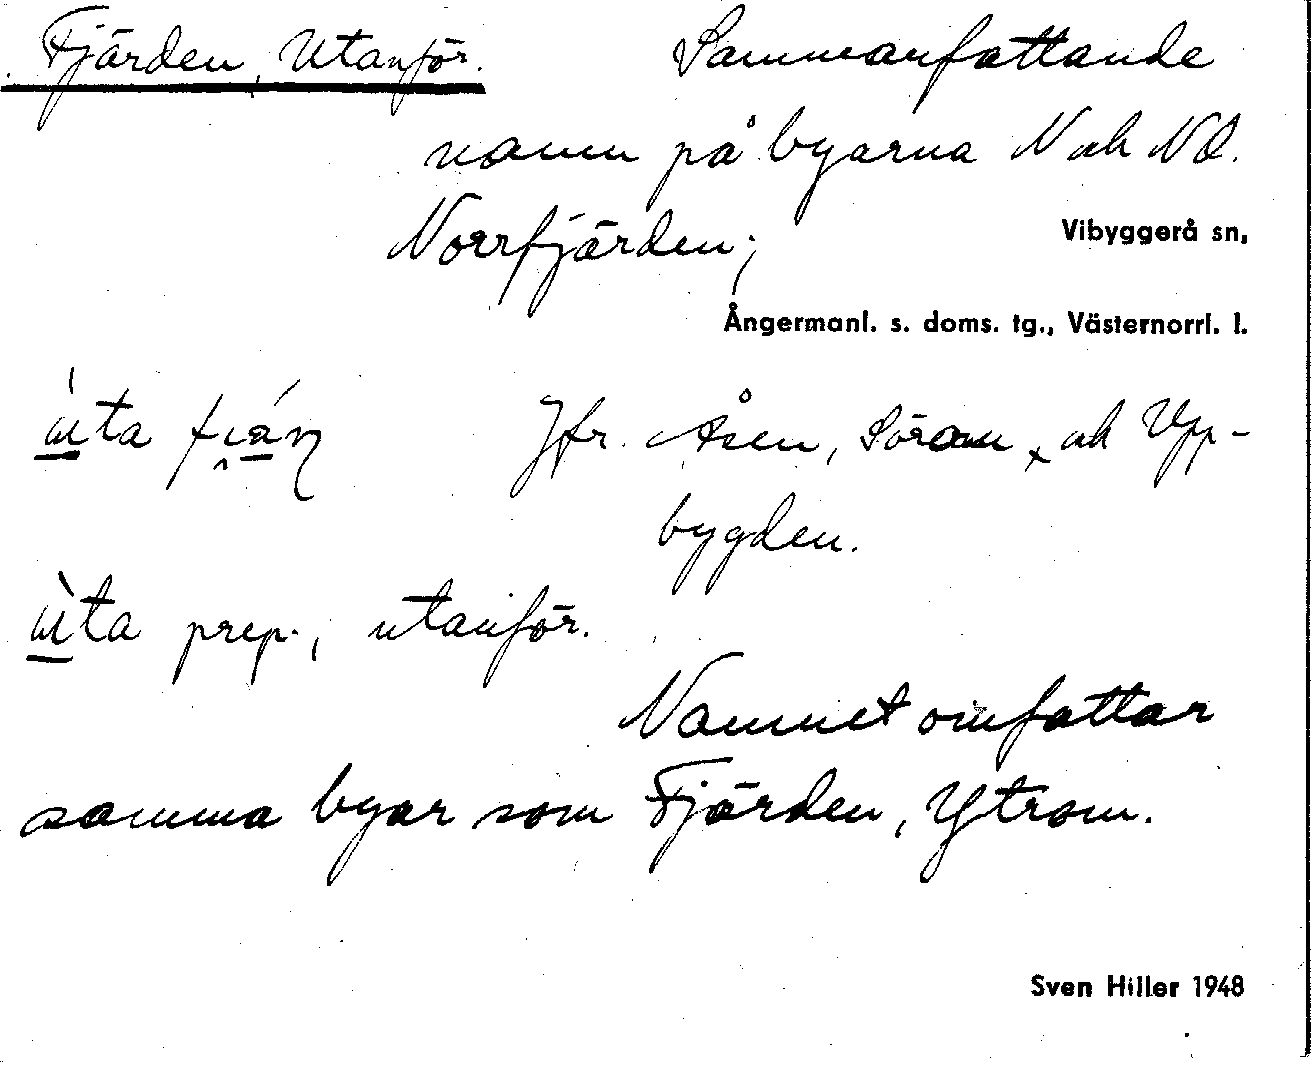 Fjärden, Utanför. Sammanfattande
namn på byarna N och NO.
Norrfjärden;
Vibyggerå sn,
Ångermanl. s. doms. tg., Västernorrl. l.
ùta Jfr. Åsen, Söråm, och Upp-
bygden.
ùta prep., utanför.
Namnet omfattar
samma byar som Fjärden, Ytrom.
Sven Hiller 1948